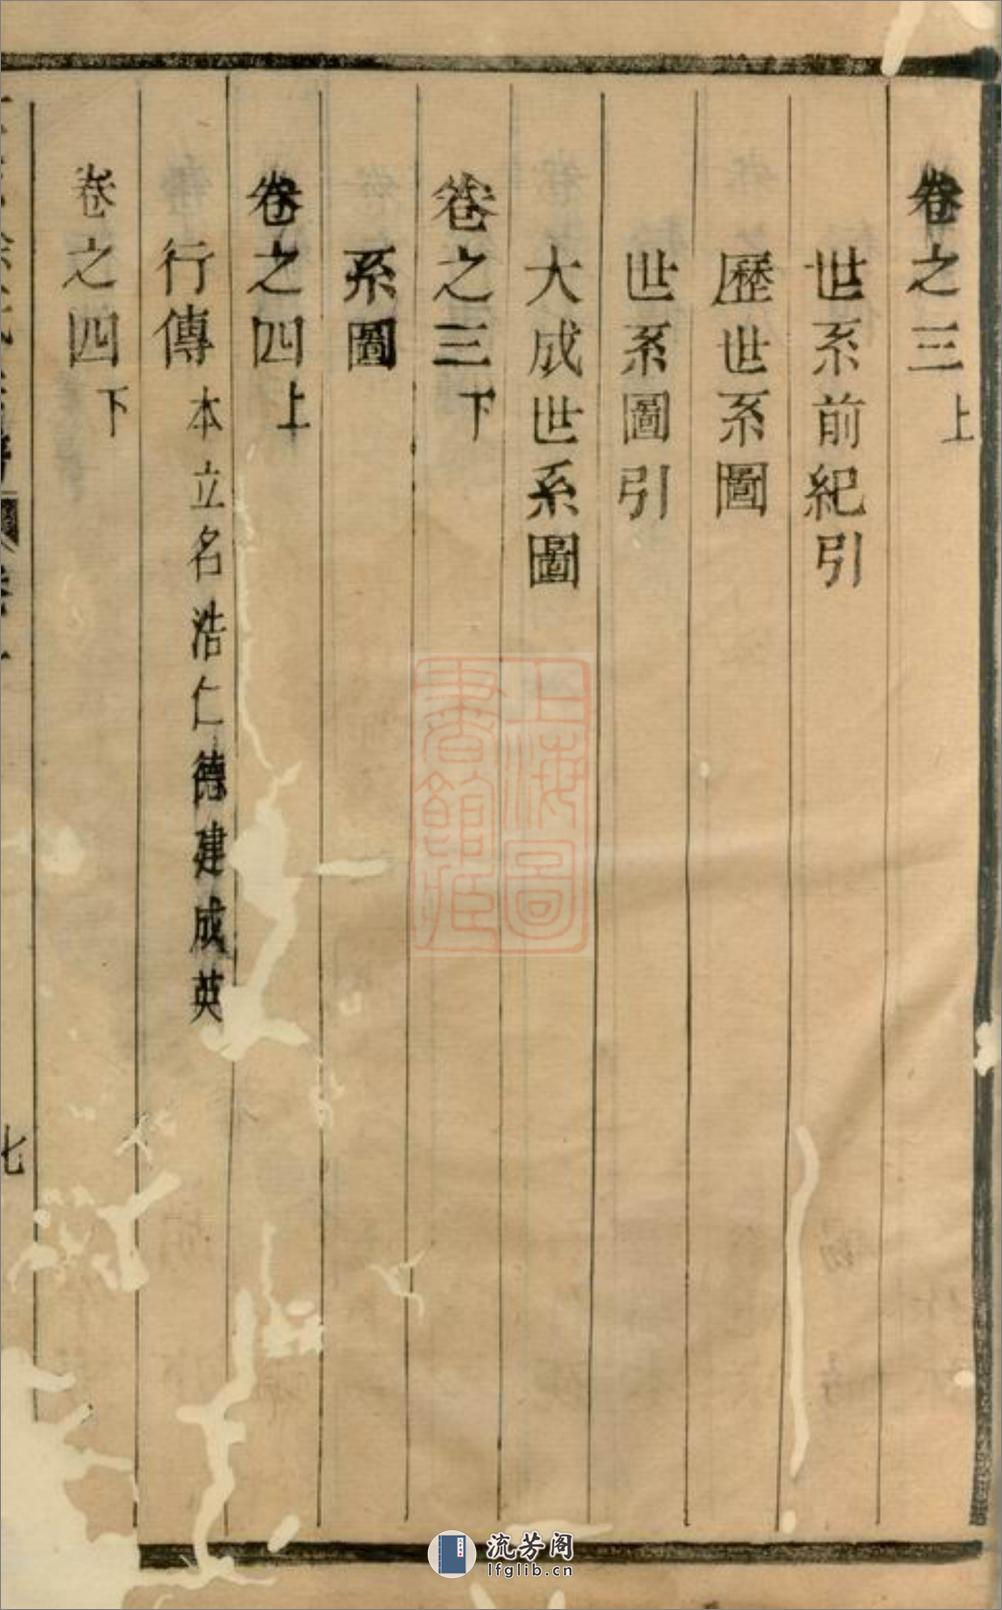 卷之三上
世系前紀引
歷世系圖
世系圖引
大成世系圖
卷之三下
系圖
卷之四上
行傳本立名浩仁德建成英
卷之四下
七
上海圖書館藏
流芳阁
lfglib.cn